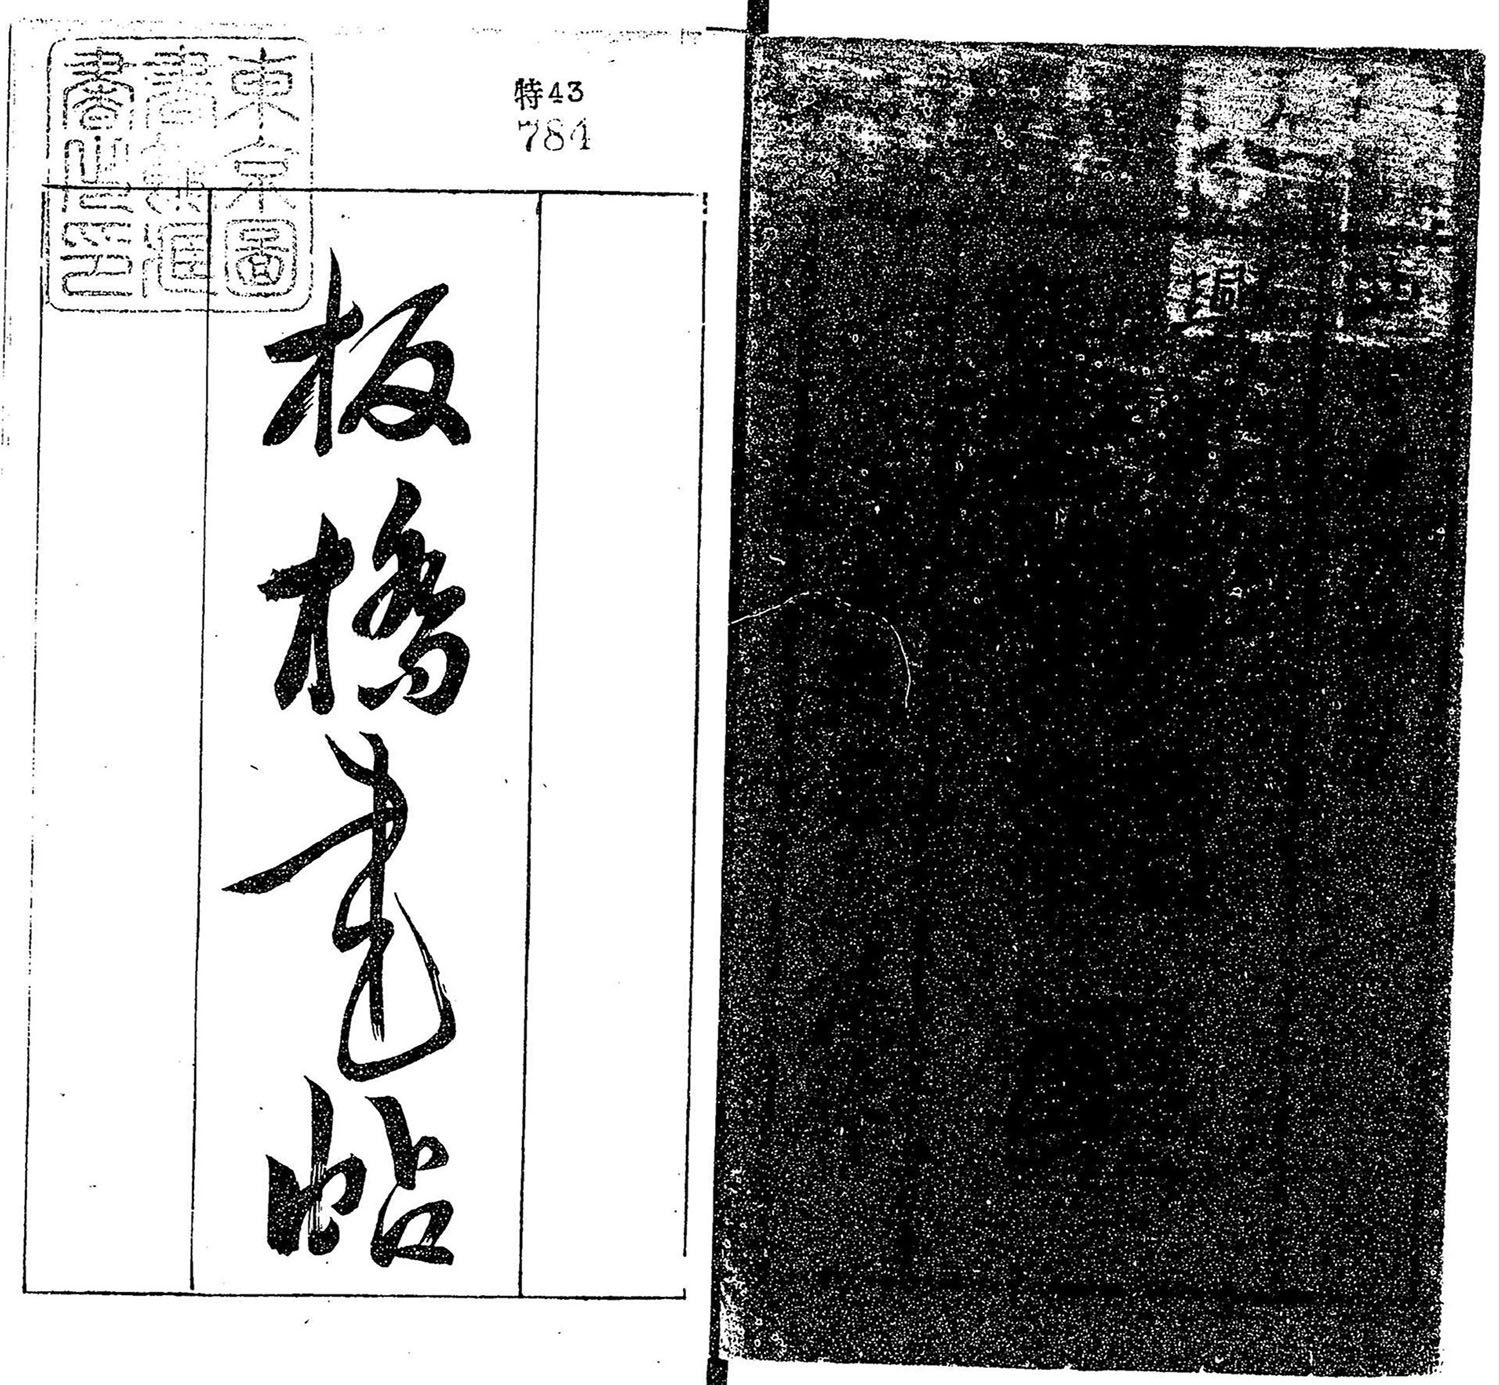 特43
784
東京圖
書館藏
書之印
板橋畫帖